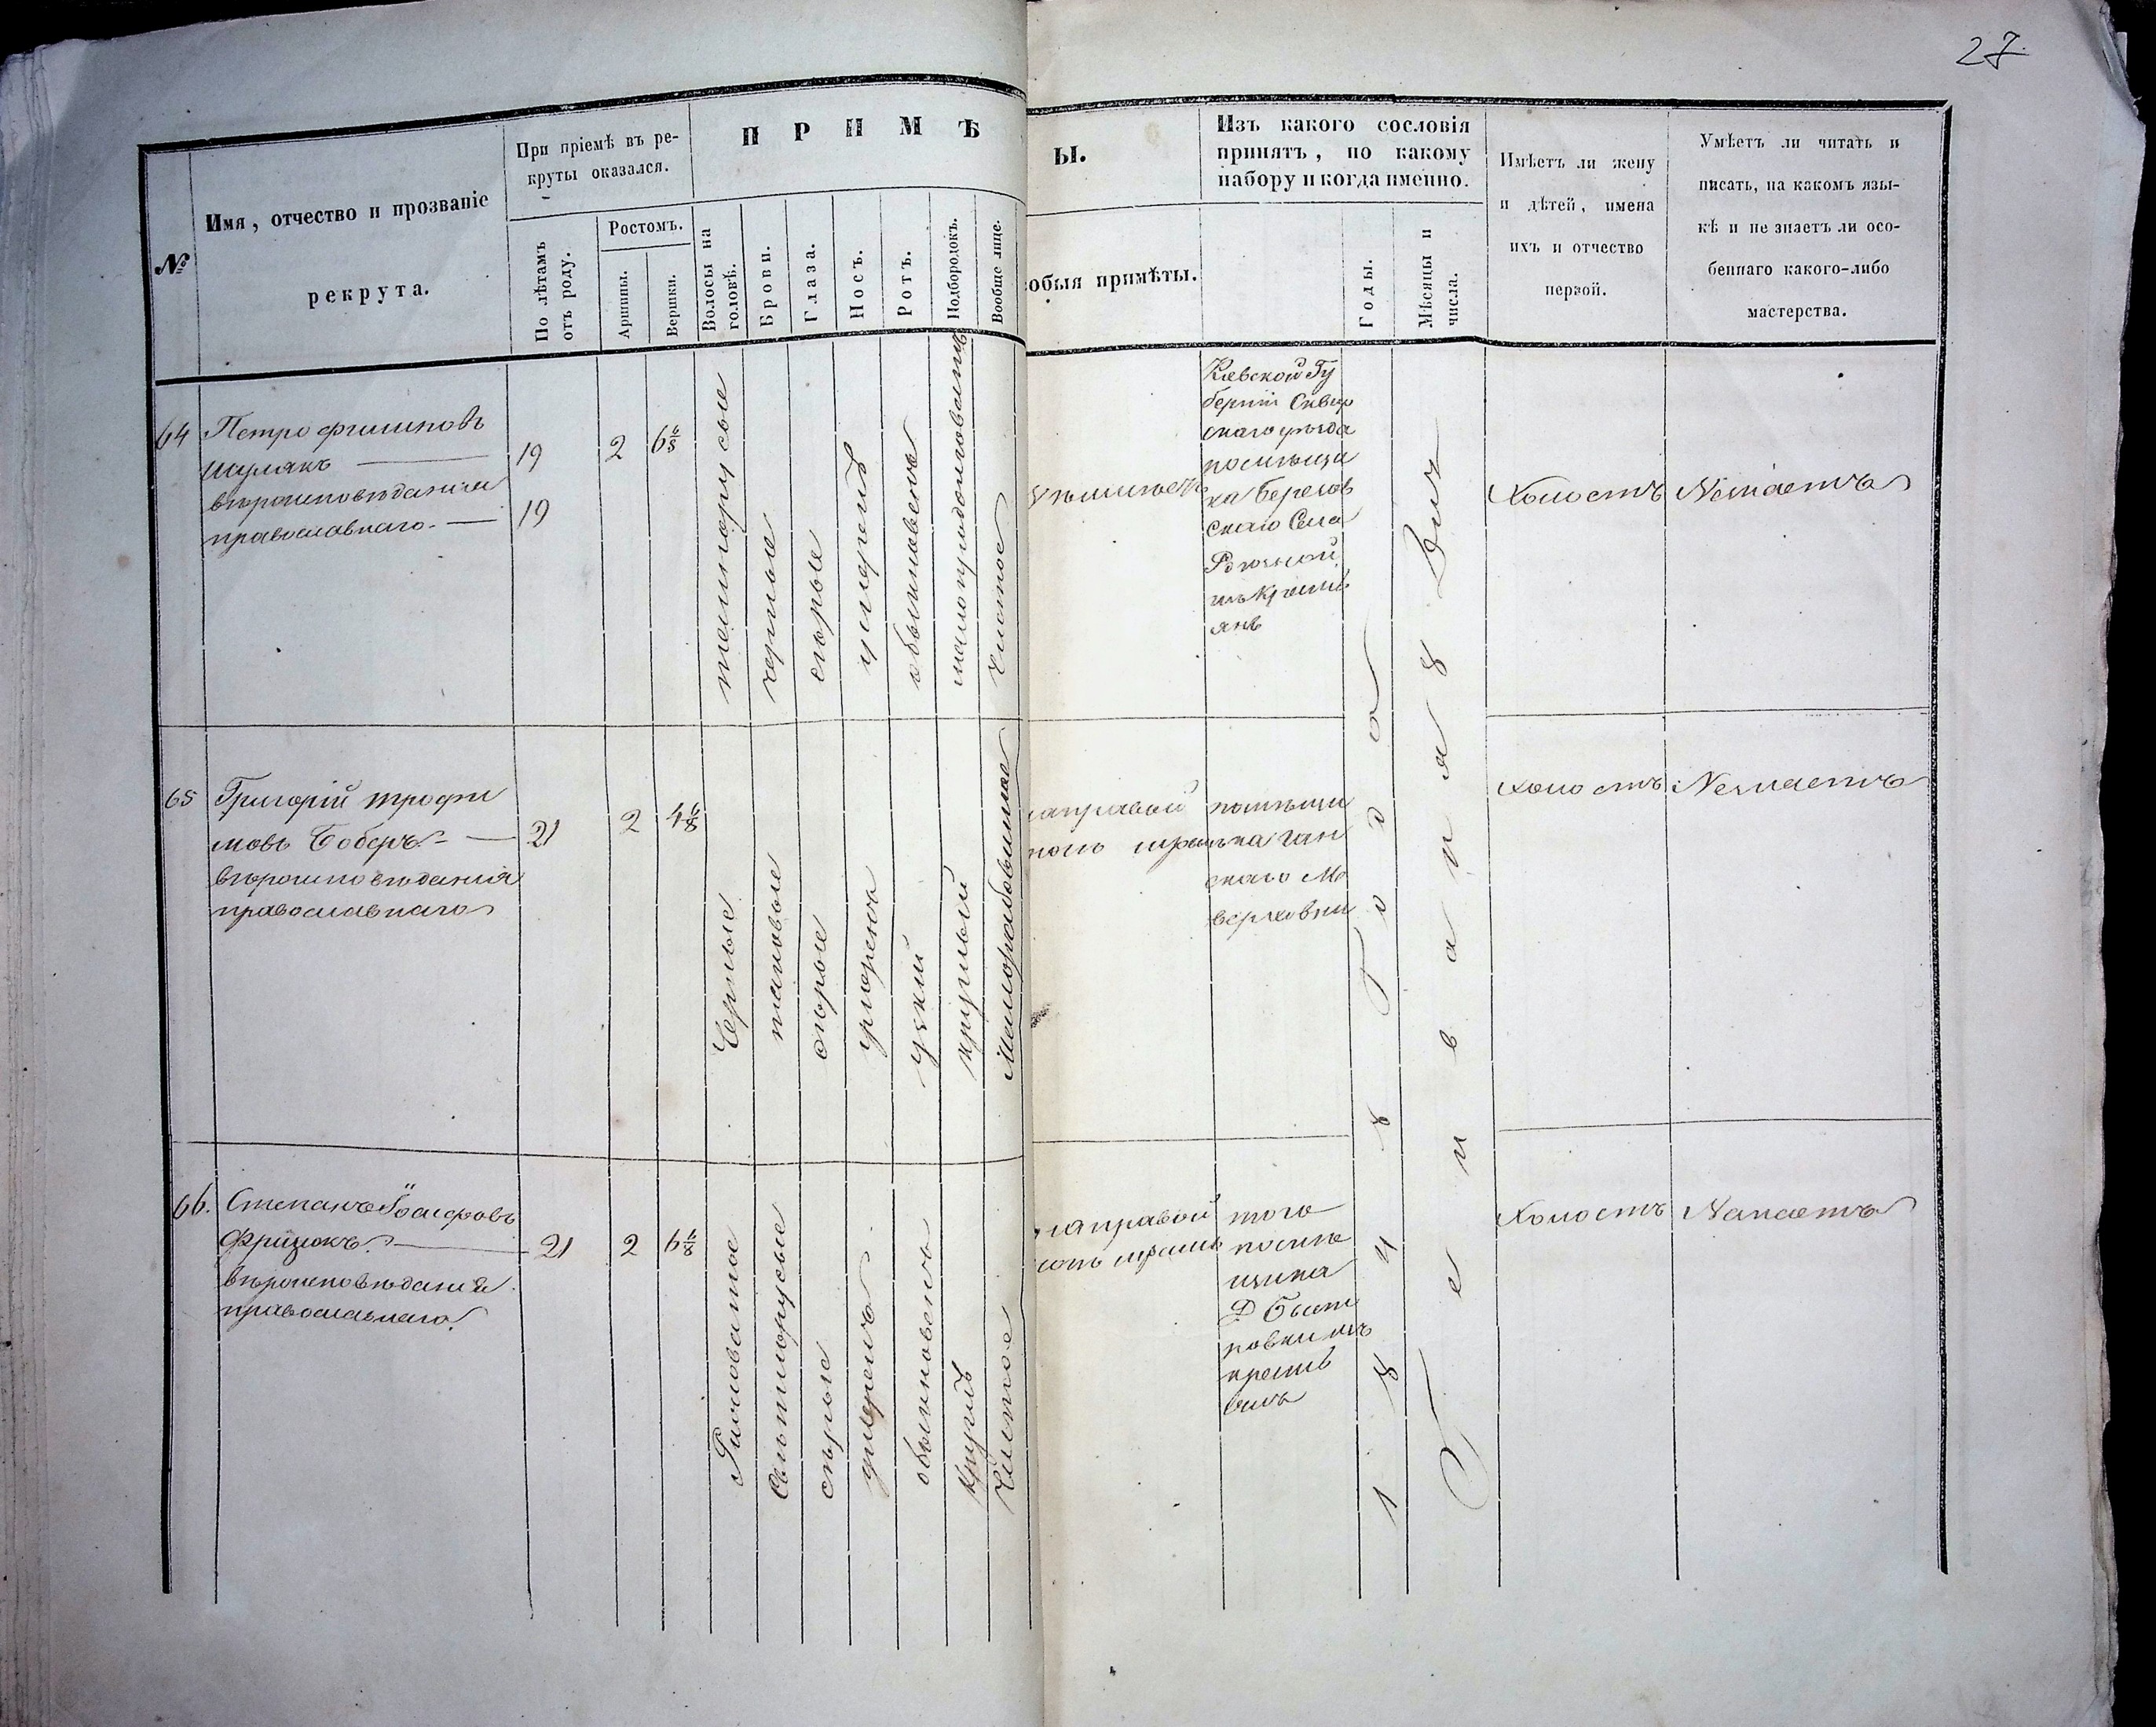 27
№
Имя, отчество и прозваніе
рекрута.
При пріемѣ въ ре-
круты оказался.
По лѣтамъ
отъ роду.
Ростомъ.
Аршины.
Вершки.
П Р И М Ѣ
Волосы на
головѣ.
Брови.
Глаза.
Носъ.
Ротъ.
Подбородокъ.
Вообще лице.
Ы.
собыя примѣты.
Изъ какого сословія
принятъ, по какому
набору и когда именно.
Годы.
Мѣсяцы и
числа.
Имѣетъ ли жену
и дѣтей, имена
ихъ и отчество
первой.
Умѣетъ ли читать и
писать, на какомъ язы-
кѣ и не знаетъ ли осо-
беннаго какого-либо
мастерства.
64
Петро
вѣроисповѣданія
православнаго.
19
19
2
6
темнорусые
черные
сѣрые
умѣренъ
обыкновенъ
чистое
Кіевской Гу
берніи Сквир
скаго уѣзда
помѣщи
ка
скаго Села
янъ
Холостъ
Незнаетъ
65
Григорій Трофи
мовъ Боберъ
вѣроисповѣданія
православнаго
21
2
4 6/8
Черные
таковые
сѣрые
умѣренъ
узкій
круглый
направой
помѣщи
ка Ган
скаго М
верховни
Холостъ
Незнаетъ
66.
Степанъ Іосифовъ
Фрицокъ
вѣроисповѣданія
православнаго.
21
2
6 6/8
Рисоватые
Свѣтлорусые
сѣрые
умѣренъ
обыкновенъ
Круглъ
Чистое
направой
того
помѣ
щика
крестъ
янъ
1 8 4 8 Года
Генваря 8 дня
Холостъ
Незнаетъ